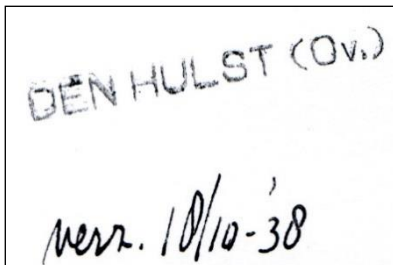 DEN HULST (Ov.)
verz. 18/10-'38